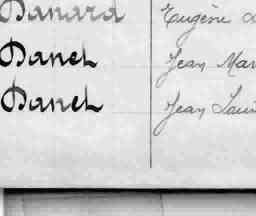 Danard Eugène
Danel Jean Mar
Danel Jean Loui